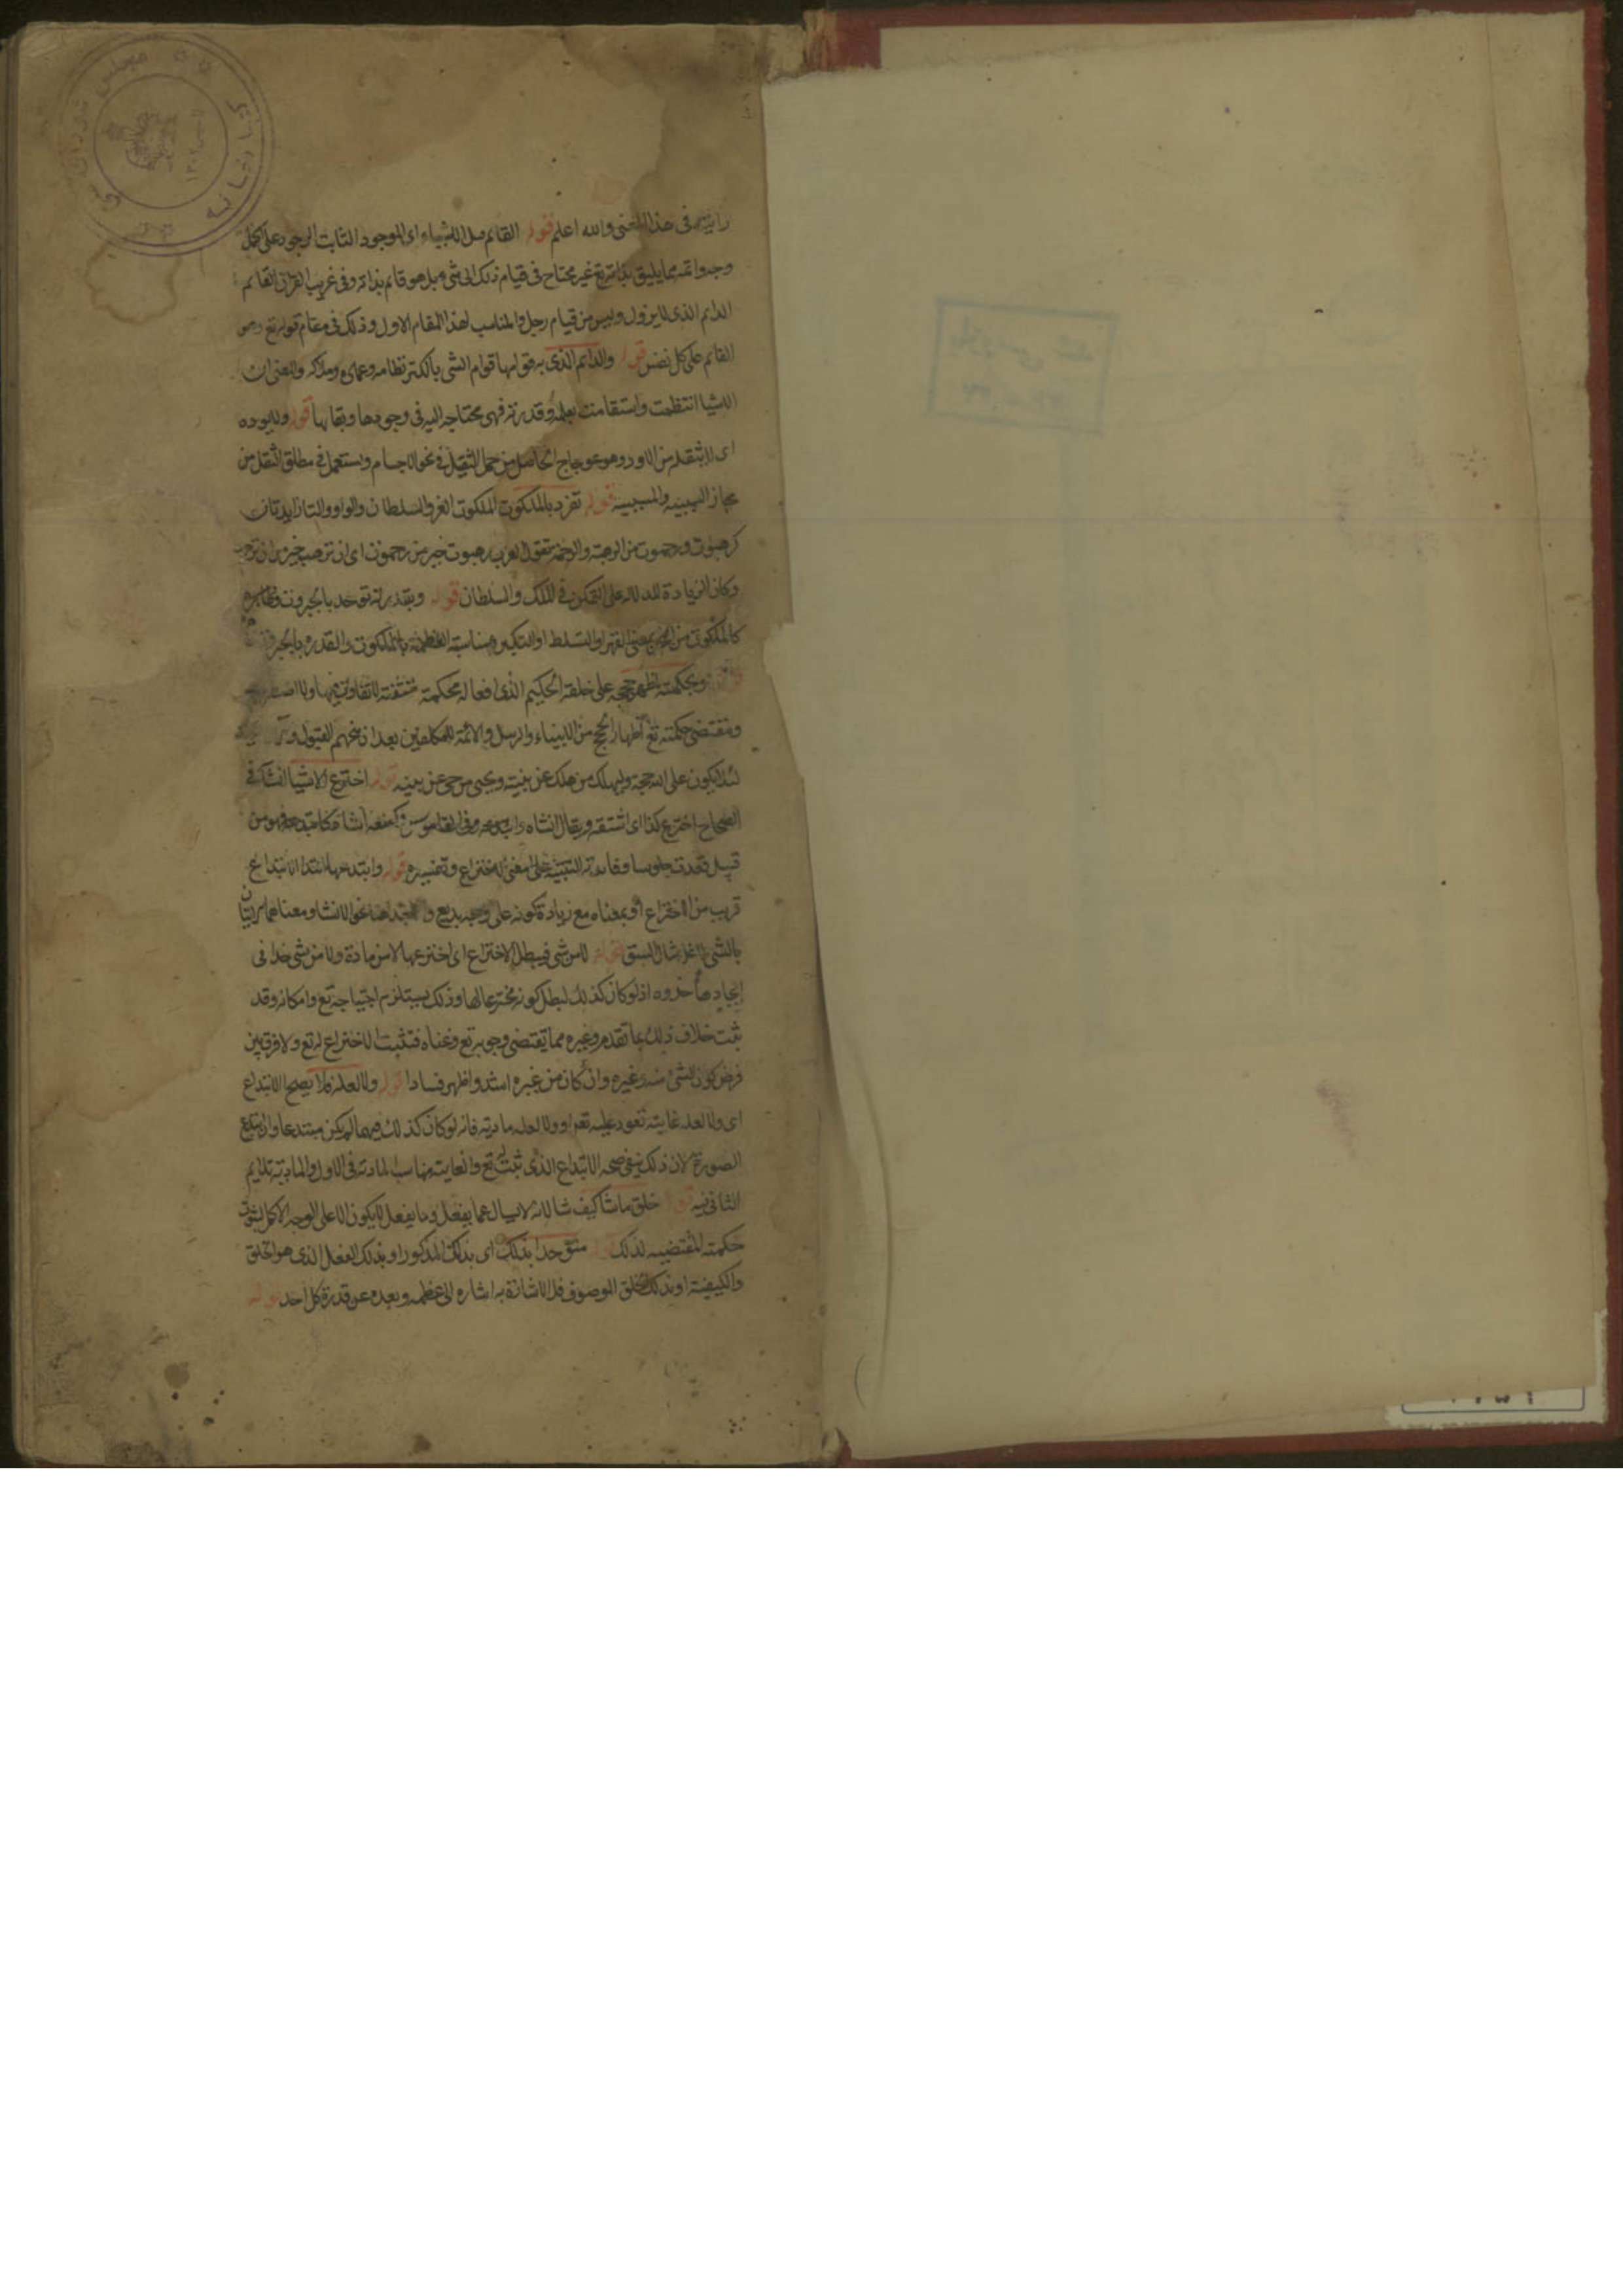 رايته في هذا المعنى والله اعلم قوله القائم قبل الاشياء اى الموجود الثابت الوجود على اكمل
وجه واتمه مما يليق بذاته تع غير محتاج فى قيام ذلك الى شىء بل هو قائم بذاته وفى غريب القران القائم
الدايم الذى لا يزول وليس من قيام رجل والمناسب لهذا المقام الاول وذلك فى مقام قوله تع وهو
القائم على كل نفس قوله والدايم الذى به قوامها قوام الشى بالكسر نظامه وعماده وملاكه والمعنى ان
الاشيا انتظمت واستقامت بعلمه وقدرته فهى محتاجه اليه فى وجودها وبقايها قوله ولا يوده
اى لا يثقله من الاود وهو اعوجاج الحاصل من حمل الثقيل فى نحو الاجسام ويستعمل فى مطلق الثقل من
مجاز السببيه والمسببيه قوله تفرد بالملكوت الملكوت العز والسلطان والواو والتا زايدتان
كرهبوت ورحموت من الرهبة والرحمة تقول العرب رهبوت خير من رحموت اى ان ترهب خير من ان ترحم
وكان الزيادة للدلاله على التمكن فى الملك والسلطان قوله وبقدرته توحد بالجبروت
كالملكوت من الجبر بمعنى القهر والتسلط او التكبر ومناسبة العظمة بالملكوت والقدره بالجبروت
وبحكمته اظهر حججه على خلقه الحكيم الذى افعاله محكمة متقنة لا تفاوت فيها ولا
ومقتضى حكمته تع اظهار الحجج من الانبياء والرسل والائمة للمكلفين بعد ان منحهم القبول
لئلا يكون على الله حجة وليهلك من هلك عن بينة ويحيى من حى عن بينه قوله اخترع الاشيا انشاء فى
الصحاح اخترع كذا اى اشتقه ويقال انشاه وابتدعه وفى القاموس وكمنعه انشاه كابتدعه فهو من
قبيل قعدت جلوسا وفايدته التنبيه على المعنى للاختراع وتفسيره قوله وابتدعها ابتدا الابتداع
قريب من الاختراع أو بمعناه مع زيادة كونه على وجه بديع والابتدا هنا نحو الانشا ومعناهما الاتيان
بالشى لا على مثال سبق قوله لا من شى فيبطل الاختراع اى اخترعها لا من مادة ولا من شى حذا فى
ايجادها حذوه اذ لو كان كذلك لبطل كونه مخترعا لها وذلك يستلزم احتياجه تع وامكانه وقد
ثبت خلاف ذلك بما تقدم وغيره مما يقتضى وجوبه تع وغناه فتثبت الاختراع له تع ولا فرق بين
فرض كون الشئ منه وغيره وان كان من غيره اشد واظهر فسادا قوله ولا لعله فلا يصح الابتداع
اى ولا لعله غاية تعود عليه تع او ولا لعله مادية فانه لو كان كذلك فيهما لم يكن مبتدعا
الصورة لان ذلك ينفى صحه الابتداع الذى ثبت له تع والغاية مناسب المادة فى الاول والماديه تلايم
الثانى قوله خلق ما شا كيف شا لانه لا يسال عما يفعل وما يفعل لا يكون الا على الوجه الاكمل لثبوت
حكمته المقتضيه لذلك قوله متوحدا بذلك اى بذلك المذكور او بذلك الفعل الذى هو الخلق
والكيفية او بذلك الخلق الموصوف فالاشارة به اشاره الى عظمه وبعده عن قدرة كل احد قوله